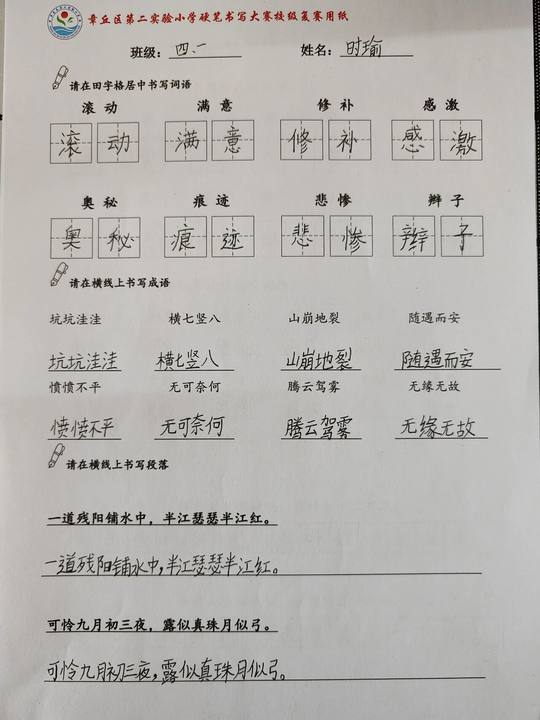 章丘区第二实验小学硬笔书写大赛校级复赛用纸
班级：四.一 姓名：时瑜
请在田字格居中书写词语
滚动 满意 修补 感激
滚动 满意 修补 感激
奥秘 痕迹 悲惨 辫子
奥秘 痕迹 悲惨 辫子
请在横线上书写成语
坑坑洼洼 横七竖八 山崩地裂 随遇而安
坑坑洼洼 横七竖八 山崩地裂 随遇而安
愤愤不平 无可奈何 腾云驾雾 无缘无故
愤愤不平 无可奈何 腾云驾雾 无缘无故
请在横线上书写段落
一道残阳铺水中，半江瑟瑟半江红。
一道残阳铺水中，半江瑟瑟半江红。
可怜九月初三夜，露似真珠月似弓。
可怜九月初三夜，露似真珠月似弓。